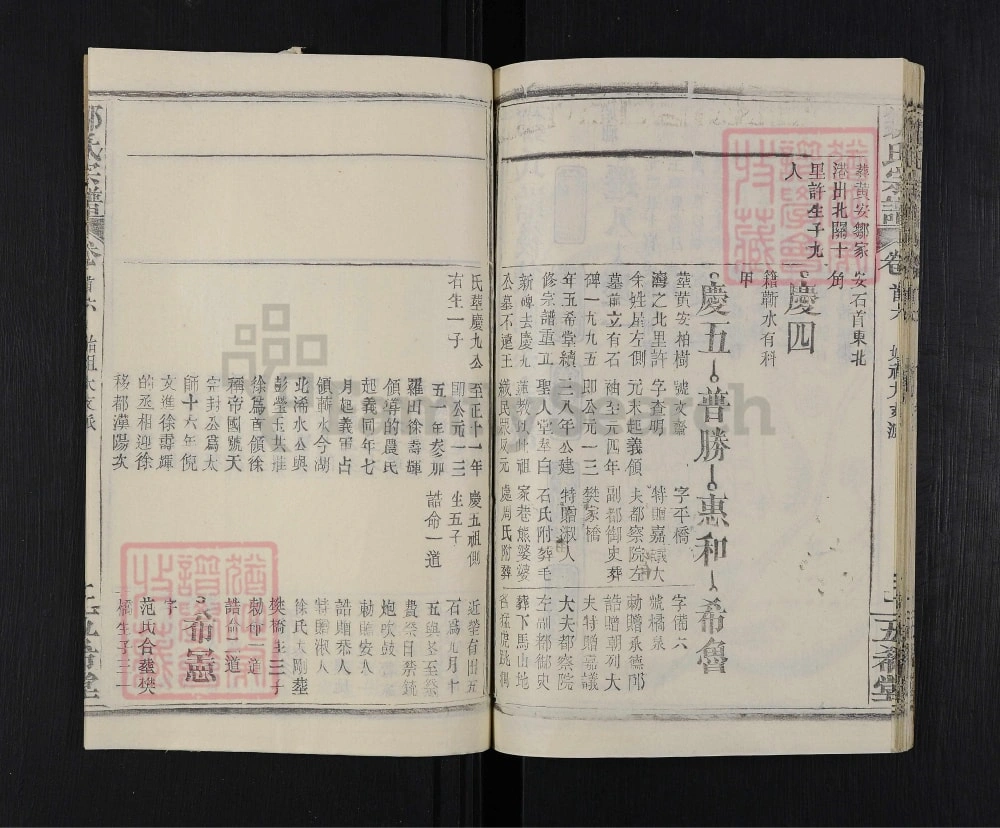 葬黃安鄒家
港出北關十
里許生子九
人
安石首東北
角
慶四
籍蘄水有科
甲
慶五
普勝
惠和
希魯
葬黃安柏樹
灣之北里許
余姓屋左側
墓前立有石
碑一九九五
年五希堂續
修宗譜重立
新碑去慶九
公墓不遠王
氏葬慶九公
右生一子
號文齋
字查明
元末起義領
袖至元四年
即公元一三
三八年公建
聖人堂奉白
蓮教以此組
織民眾反元
至正十一年
即公元一三
五一年參加
羅田徐壽輝
領導的農民
起義同年七
月起義軍占
領蘄水今湖
北浠水公與
彭瑩玉共推
徐爲首領徐
稱帝國號天
完封公爲太
師十六年倪
文進徐壽輝
的丞相迎徐
移都漢陽次
字平橋
特贈嘉議大
夫都察院左
副都御史葬
樊家橋
特贈淑人
石氏附葬毛
家巷熊婆婆
處周氏附葬
慶五祖側
生五子
誥命一道
字衛六
號橘泉
勅贈承德郎
誥贈朝列大
夫特贈嘉議
大夫都察院
左副都御史
葬下馬山地
名猛虎跳澗
近塋有田五
石爲九月十
五與冬至祭
費祭日祭銃
炮吹鼓
勅贈安人
誥贈恭人
特贈淑人
徐氏大剛葬
樊橋生三子
勅命一道
誥命一道
希憲
字
范氏合葬樊
橋生子三一
鄒氏宗譜
卷首六
始祖大支派
五希堂
FamilySearch